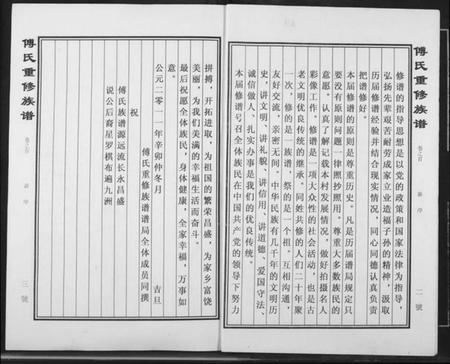 傅氏重修族谱
卷之首
新序
二號
修谱的指导思想是以党的政策和国家法律为指导，
弘扬先辈艰苦耐劳成家立业造福子孙的精神，汲取
历届修谱经验并结合现实情况，同心同德认真负责
把谱修好。
本届修谱的原则是尊重历史。凡是历届谱局规定只
要没有原则问题一律照抄照用。尊重大多数族民的
意愿。认真了解记载本村发展情况，做好拍摄名人
彩像工作。修谱是一项大众性的社会活动，也是古
老文明优良传统的继承。同姓共修的人们二十年聚
一次，修的是一族谱，祭的是一个祖。互相沟通，
友好交流，亲密无间。中华民族有几千年的文明历
史，讲文明、讲礼貌、讲信用、讲道德、爱国守法、
诚信做人，扎实办事是我们的优良传统。
本届修谱号召全体族民在中国共产党的领导下努力
拼搏，开拓进取，为祖国的繁荣昌盛，为家乡富饶
美丽，为我们美满的幸福生活而奋斗。
最后祝愿全体族民，身体健康，全家幸福，万事如
意。
公元二零一一年辛卯仲冬月
吉旦
傅氏重修族谱谱局全体成员同撰
祝
傅氏族谱源远流长永昌盛
说公后裔星罗棋布遍九洲
傅氏重修族谱
卷之首
新序
三號